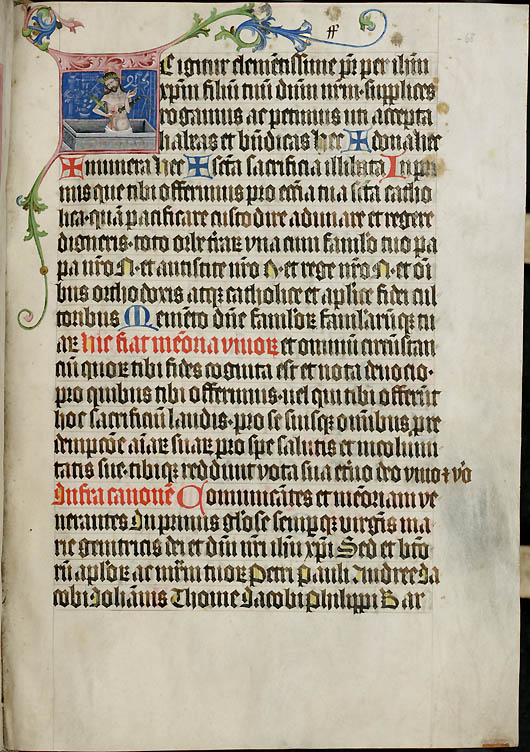 E igitur clemētissime pr̄ per ihm̄
xp̄m filiū tuū dūm nr̄m supplices
rogamus ac petimus uti accepta
habeas et bn̄dicas hec dona hec
munera hec sc̄ta sacrificia illibata In pri
mis que tibi offerimus pro ecc̄a tua sc̄ta catho
lica· quā pacificare custodire adunare et regere
digneris· toto orbe t̄rarꝝ vna cum famlo tuo pa
pa nr̄o N· et antistite nr̄o N· et rege nr̄o N· et oī
bus orthodoxis atqꝫ catholice et aplice fidei cul
toribus Memēto dn̄e famlorꝝ famularūqꝫ tu
arꝝ hic fiat memōria viuorꝝ et omniū circūstan
ciū quorꝝ tibi fides cognita est et nota deuocio·
pro quibus tibi offerimus· uel qui tibi offerūt
hoc sacrificiū laudis· pro se suisqꝫ omībus pre
dempcōe aīarꝝ suarꝝ pro spe salutis et incolumi
tatis sue· tibiqꝫ reddunt vota sua et̄no deo viuo ⁊ vō
Infra canonē Comunicātes et memoriam ve
nerantes In primis gl̄ose semperqꝫ virgīs ma
rie genitricis dei et dn̄i nr̄i ihū xp̄i Sed et bt̄o
rū apl̄orꝝ ac mr̄m tuorꝝ Petri Pauli Andree Ja
cobi Johānis Thome Jacobi Philippi Bar